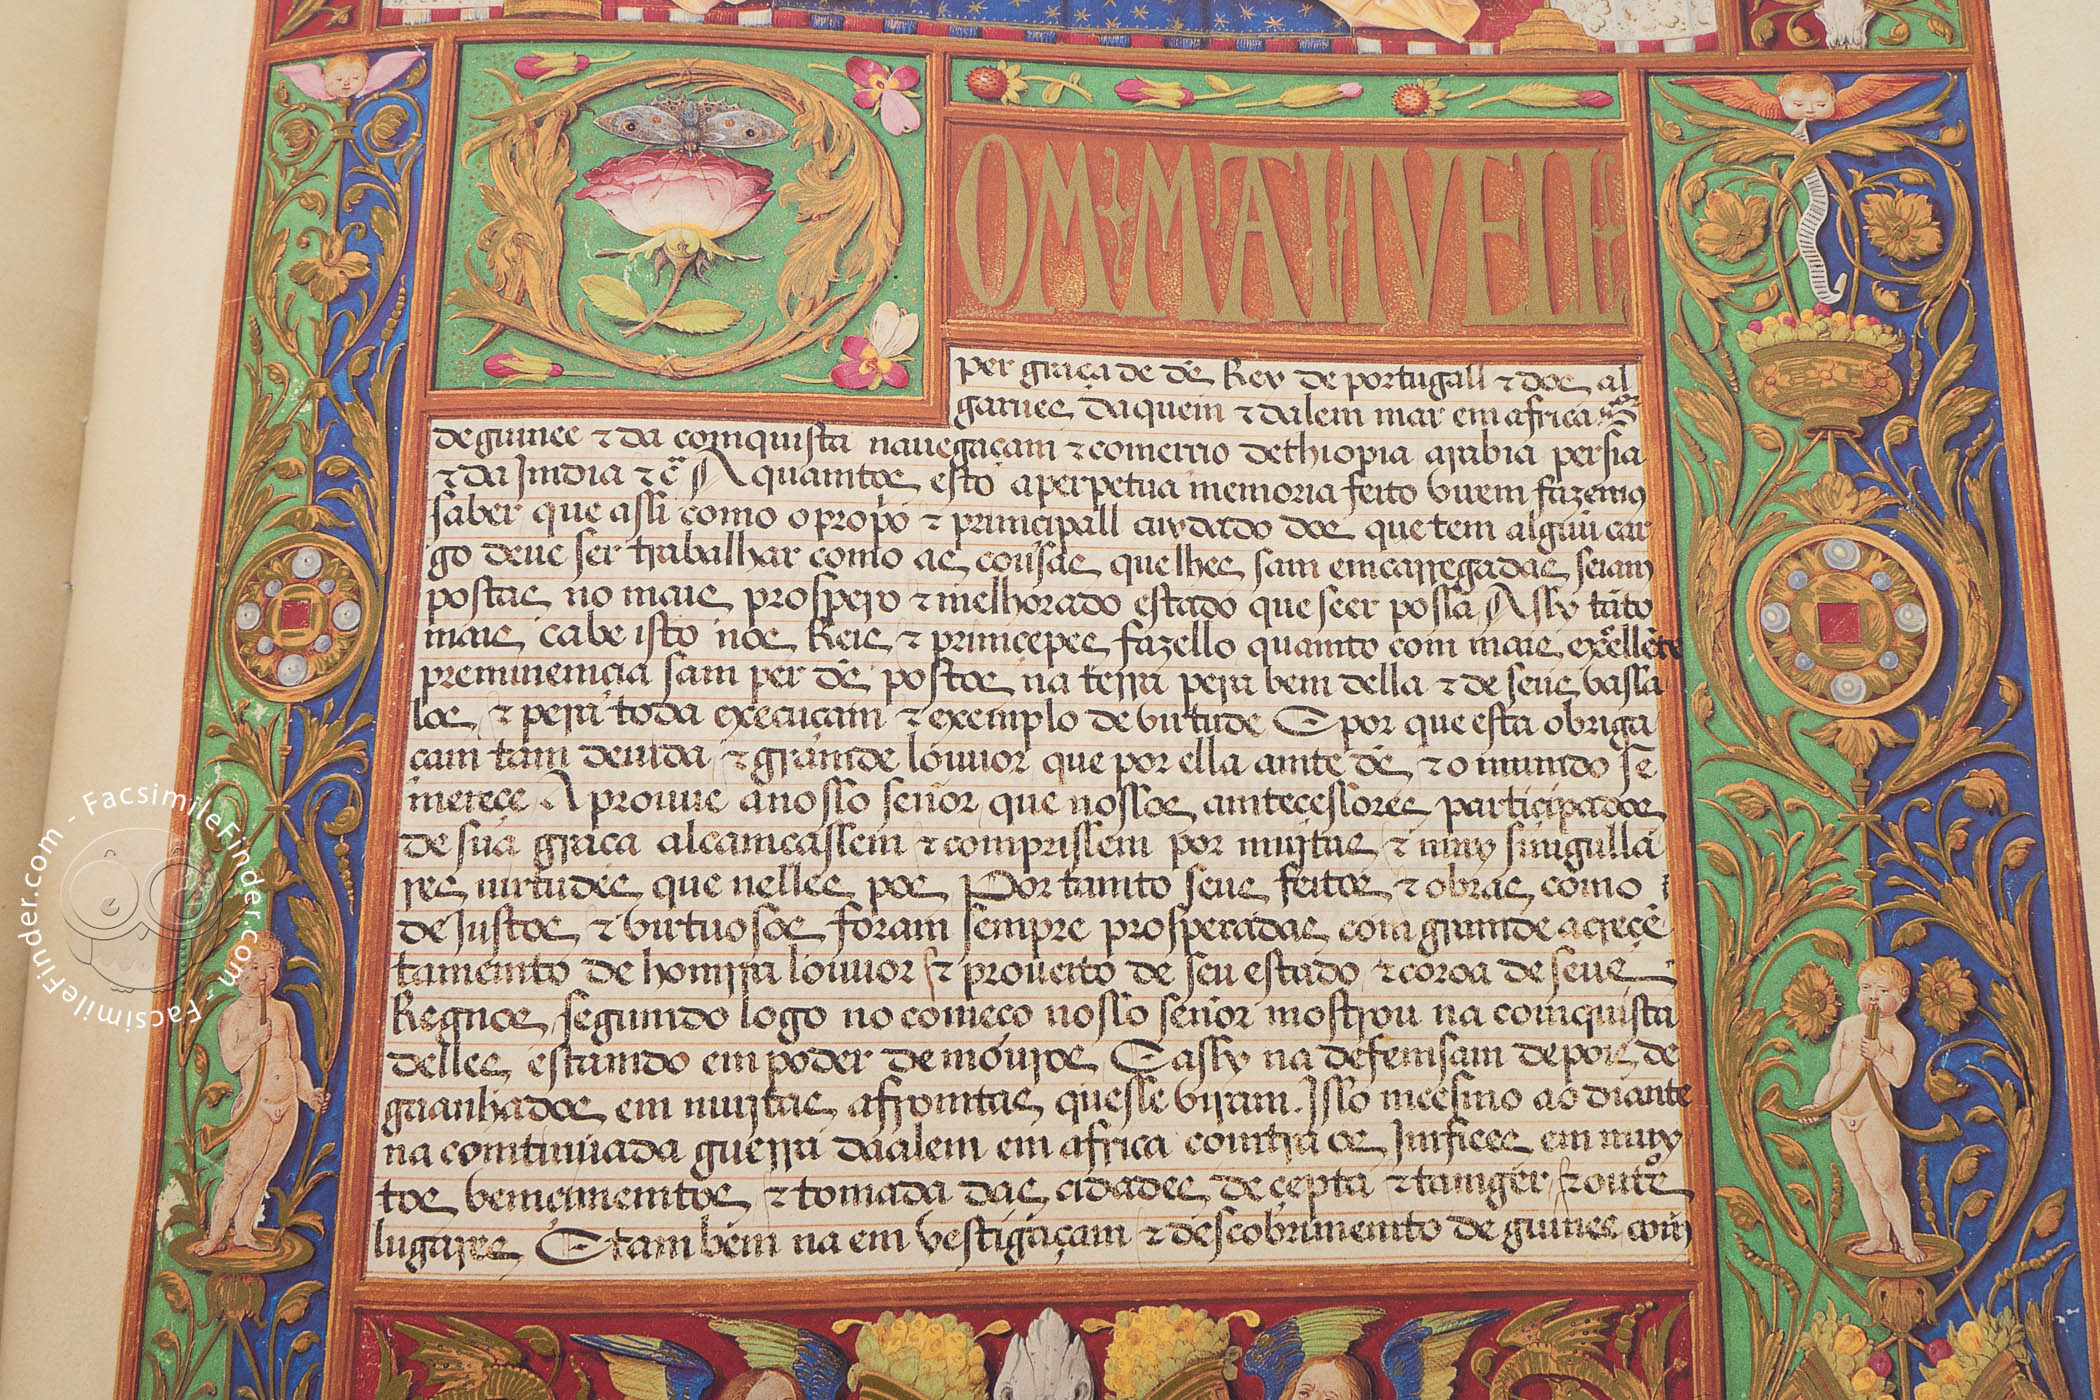 DOM MANVELL
per graça de dẽs Rey de portugall ⁊ dos al
garues daquem ⁊ dalem mar em africa Sõr
de guinee ⁊ da comquista nauegaçam ⁊ comerrio dethiopia arabia persia
⁊ da Jmdia ⁊ cª A quamtos esto a perpetua memoria feito virem fazemos
saber que assi como o prop̃o ⁊ primcipall cuydado dos que tem algũu car
go deue ser trabalhar como as cousas que lhes sam emcarregadas seiam
postas no mais prospero ⁊ melhorado estado que seer possa Assy tãto
mais cabe isto nos Reis ⁊ primcepes fazello quamto com mais exçellẽte
preminemcia sam per dẽs postos na terra pera bem della ⁊ de seus vassa
los ⁊ pera toda execuçam ⁊ exemplo de virtude E por que esta obriga
çam tam deuida ⁊ gramde louuor que por ella amte dẽs ⁊ o mumdo se
mereçe Aprouue a nosso señor que nossos amtecessores participados
de sua graça alcamcassem ⁊ comprissem por mujtas ⁊ muy simgulla
res virtudes que nelles pos Por tamto seus feitos ⁊ obras como
de Justos ⁊ virtuosos foram sempre prosperadas com gramde acreçẽ
tamemto de homrra louuor ⁊ proueito de seu estado ⁊ coroa de seus
Regnos segumdo logo no começo nosso señor mostrou na comquista
delles estamdo em poder de mouros E assy na defemsam depois de
guanhados em mujtas afromtas que sse viram. Jsso meesmo ao diante
na comtinuada guerra daalem em africa comtra os Jmfiees em muy
tos vemçimemtos ⁊ tomada das cidades de çepta ⁊ tamger ⁊ outºs
lugares E tambem na emvestigaçam ⁊ descobrimemto de guinee com
FacsimileFinder.com - FacsimileFinder.com - FacsimileFinder.com